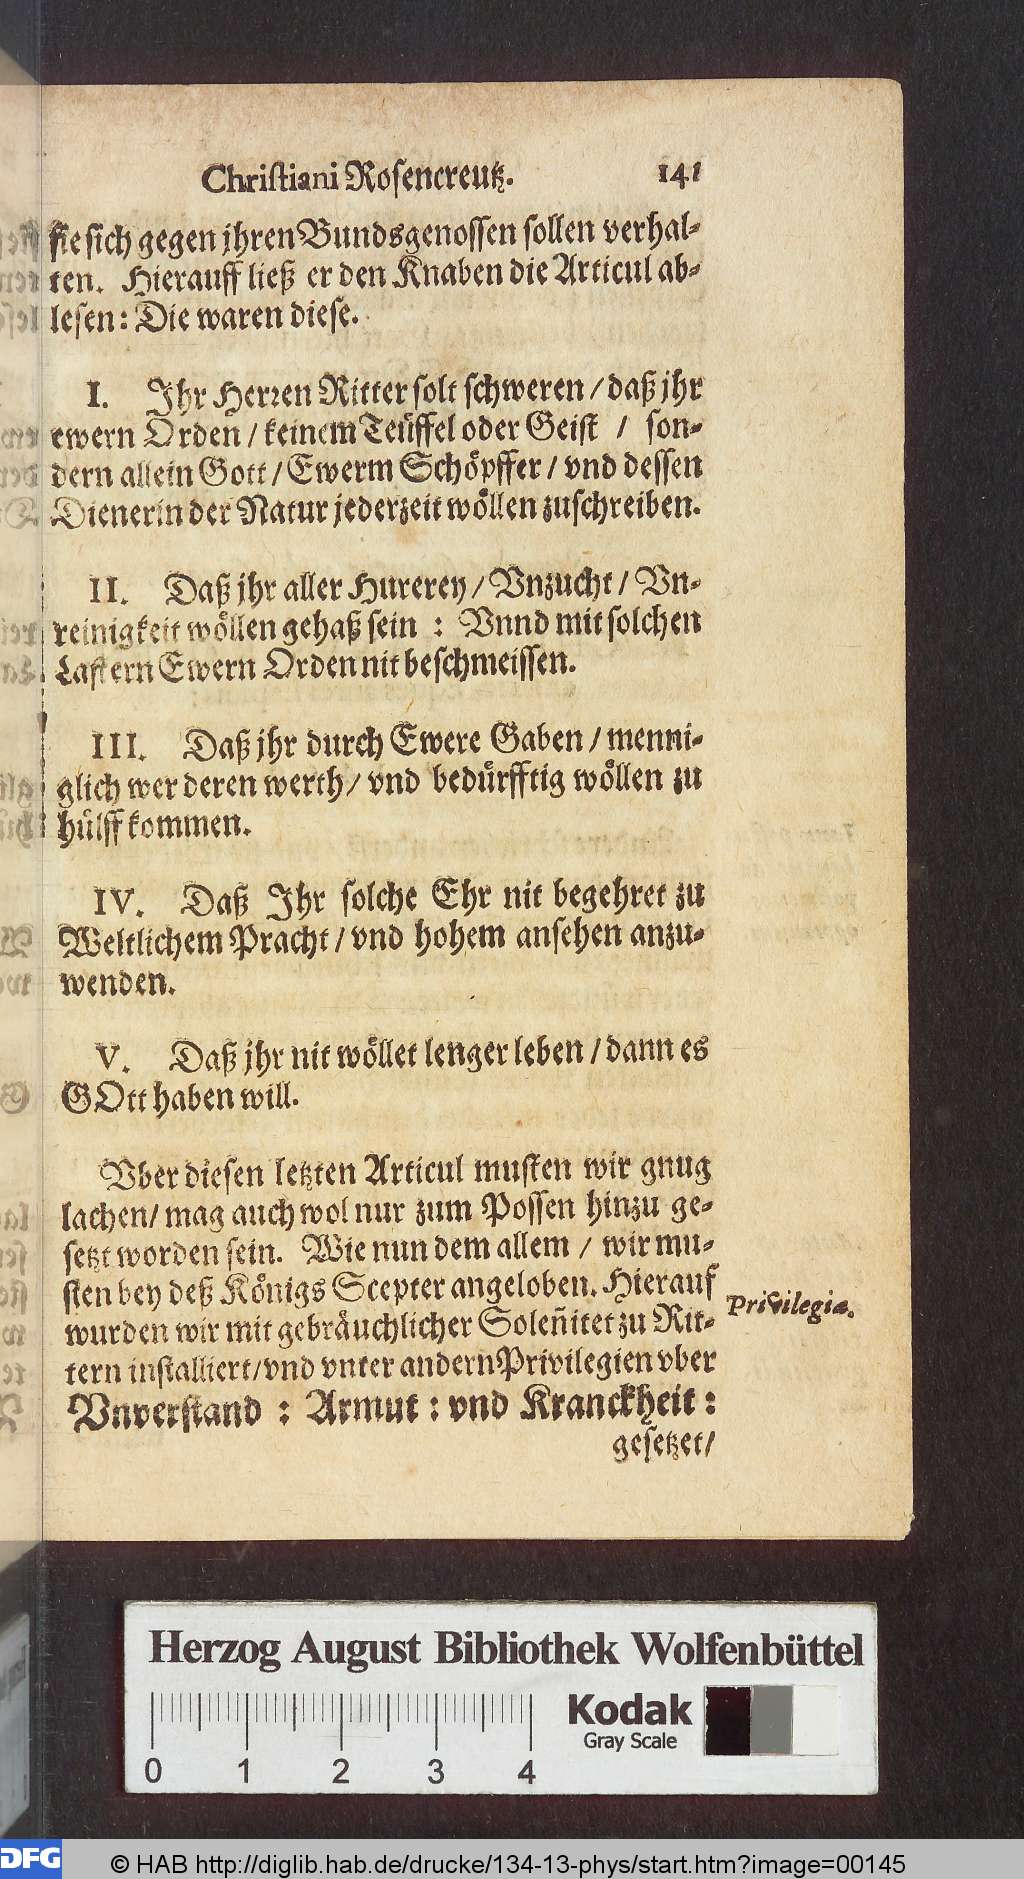 Christiani Rosencreutz. 141
sie sich gegen jhren Bundsgenossen sollen verhal-
ten. Hierauff ließ er den Knaben die Articul ab-
lesen: Die waren diese.
I. Jhr Herren Ritter solt schweren / daß jhr
ewern Orden / keinem Teüffel oder Geist / son-
dern allein Gott / Ewerm Schöpffer / vnd dessen
Dienerin der Natur jederzeit wöllen zuschreiben.
II. Daß jhr aller Hurerey / Vnzucht / Vn-
reinigkeit wöllen gehaß sein : Vnnd mit solchen
Lastern Ewern Orden nit beschmeissen.
III. Daß jhr durch Ewere Gaben / menni-
glich wer deren werth / vnd bedürfftig wöllen zu
hülff kommen.
IV. Daß Jhr solche Ehr nit begehret zu
Weltlichem Pracht / vnd hohem ansehen anzu-
wenden.
V. Daß jhr nit wöllet lenger leben / dann es
GOtt haben will.
Vber diesen letzten Articul musten wir gnug
lachen / mag auch wol nur zum Possen hinzu ge-
setzt worden sein. Wie nun dem allem / wir mu-
sten bey deß Königs Scepter angeloben. Hierauf
wurden wir mit gebräuchlicher Soleñitet zu Rit-
tern installiert / vnd vnter andern Privilegien vber
Vnverstand : Armut : vnd Kranckheit :
gesetzet /
Privilegia.
Herzog August Bibliothek Wolfenbüttel
Kodak
Gray Scale
0 1 2 3 4
DFG
© HAB http://diglib.hab.de/drucke/134-13-phys/start.htm?image=00145